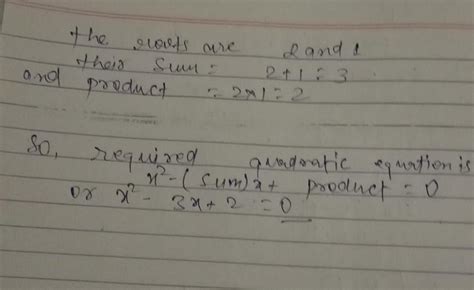 the roots are 2 and 1
their sum = 2+1 = 3
and product = 2×1 = 2
So, required quadratic equation is
x² - (sum)x + product = 0
or x² - 3x + 2 = 0